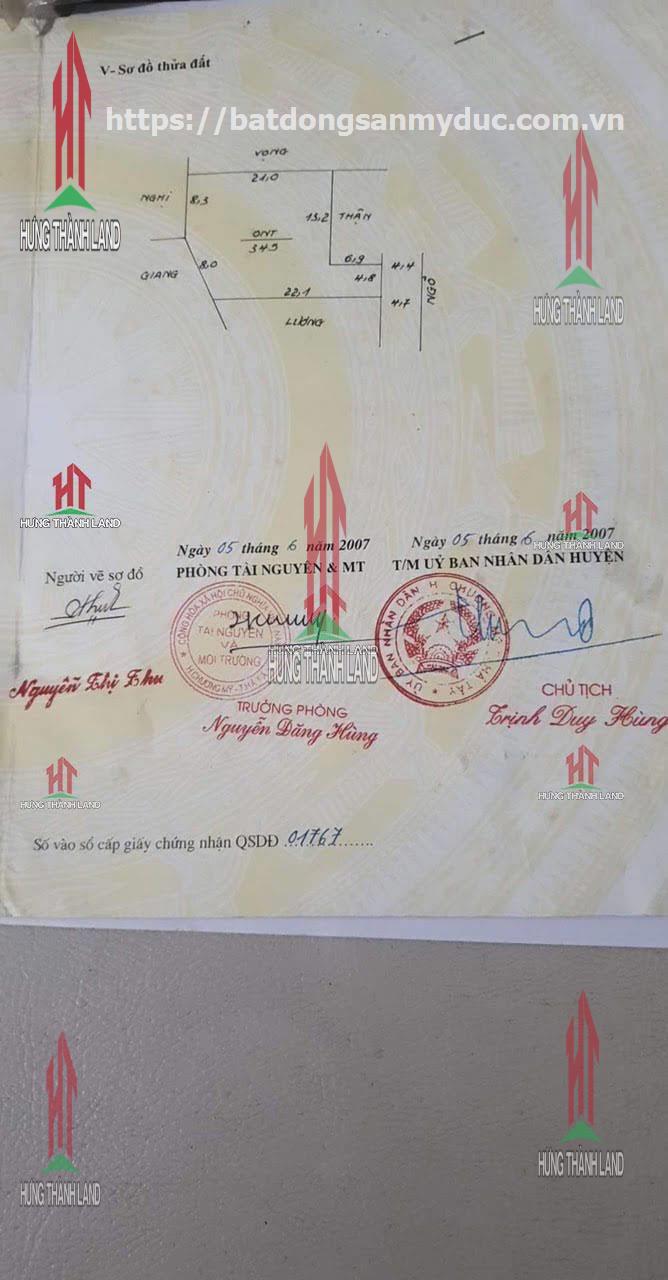 V- Sơ đồ thửa đất
https://batdongsanmyduc.com.vn
HƯNG THÀNH LAND
VỌNG
21,0
NGHỊ
8,3
13,2
THÂN
ONT
345
HƯNG THÀNH LAND
GIANG
8,0
6,9
4,4
4,8
NGÕ
22,1
4,7
LƯƠNG
HT
HƯNG THÀNH LAND
HT
HƯNG THÀNH LAND
Ngày 05 tháng 6 năm 2007
Ngày 05 tháng 6 năm 2007
Người vẽ sơ đồ
PHÒNG TÀI NGUYÊN & MT
T/M UỶ BAN NHÂN DÂN HUYỆN
CỘNG HÒA XÃ HỘI CHỦ NGHĨA
PHÒNG
TÀI NGUYÊN
VÀ
MÔI TRƯỜNG
H.CHƯƠNG MỸ
ỦY BAN NHÂN DÂN H. CHƯƠNG
HÀ TÂY
HƯNG THÀNH LAND
Nguyễn Thị Thu
TRƯỞNG PHÒNG
Nguyễn Đăng Hùng
CHỦ TỊCH
Trịnh Duy Hùng
HT
HƯNG THÀNH LAND
HT
HƯNG THÀNH LAND
Số vào sổ cấp giấy chứng nhận QSDĐ .01767.......
HT
HƯNG THÀNH LAND
HT
HƯNG THÀNH LAND
HT
HƯNG THÀNH LAND